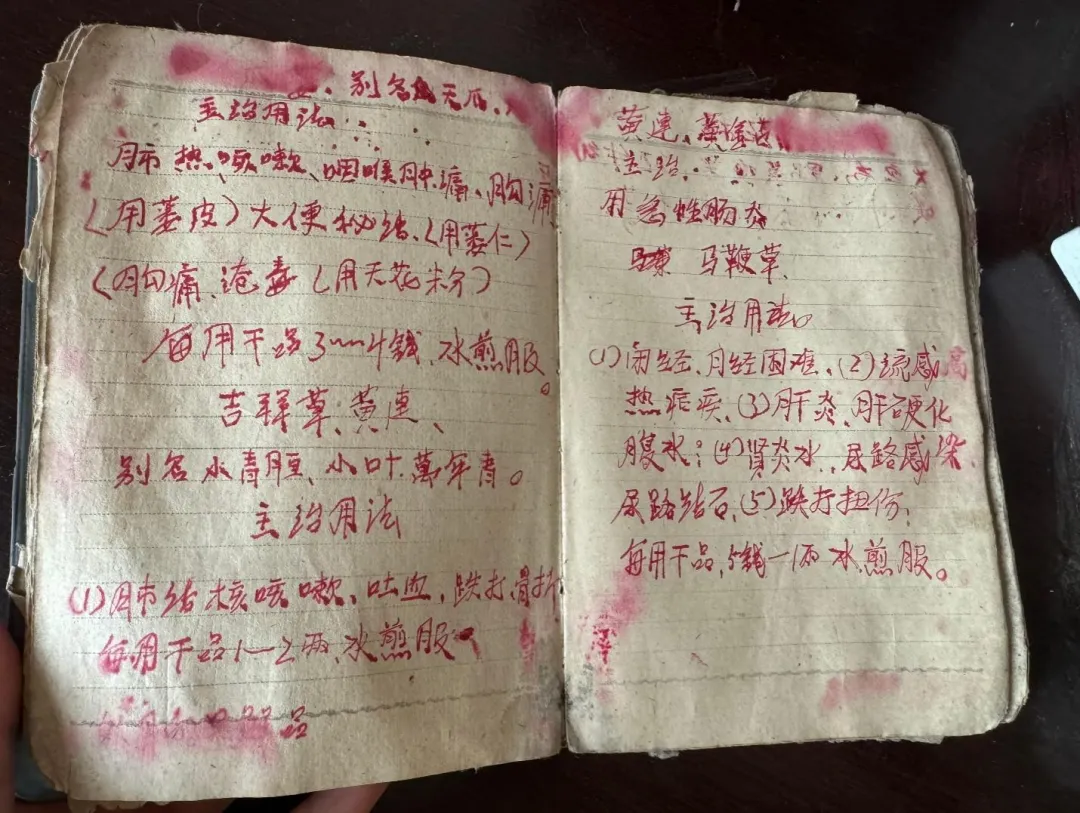 别名天瓜、
主治用法：
肺热、咳嗽、咽喉肿痛、胸痛
（用蒌皮）大便秘结、（用蒌仁）
（胸痛、疮毒（用天花粉）
每用干品3—4錢、水煎服。
吉祥草、黄连、
别名水青胆、小叶萬年青。
主治用法
(1)肺结核咳嗽、吐血、跌打骨折
每用干品1—2两、水煎服
品
黄连、
主治、
用急性肠炎
马鞭草、
主治用法。
(1)闭经、月经困难、(2)流感高
热疟疾、(3)肝炎、肝硬化
腹水；(4)肾炎水、尿路感染、
尿路结石、(5)跌打扭伤、
每用干品、5錢—1两水煎服。